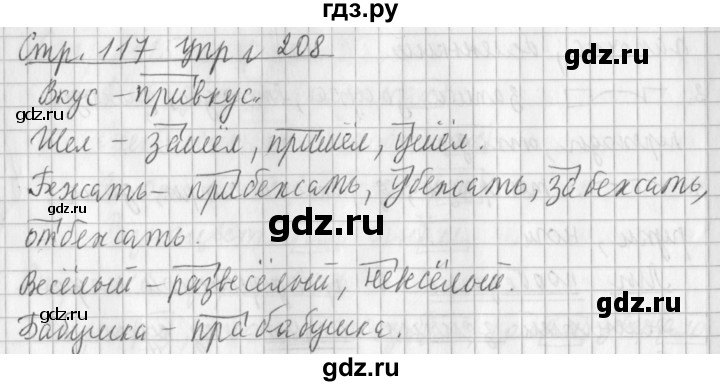 гдз.ру
Стр. 117 упр. 208
Вкус – привкус.
Шел – зашёл, пришёл, ушёл.
Бежать – прибежать, убежать, забежать,
отбежать.
Весёлый – развесёлый,
Бабушка – прабабушка.
gdz.ru
gdz.ru
gdz.ru
gdz.ru
gdz.ru
gdz.ru
gdz.ru
gdz.ru